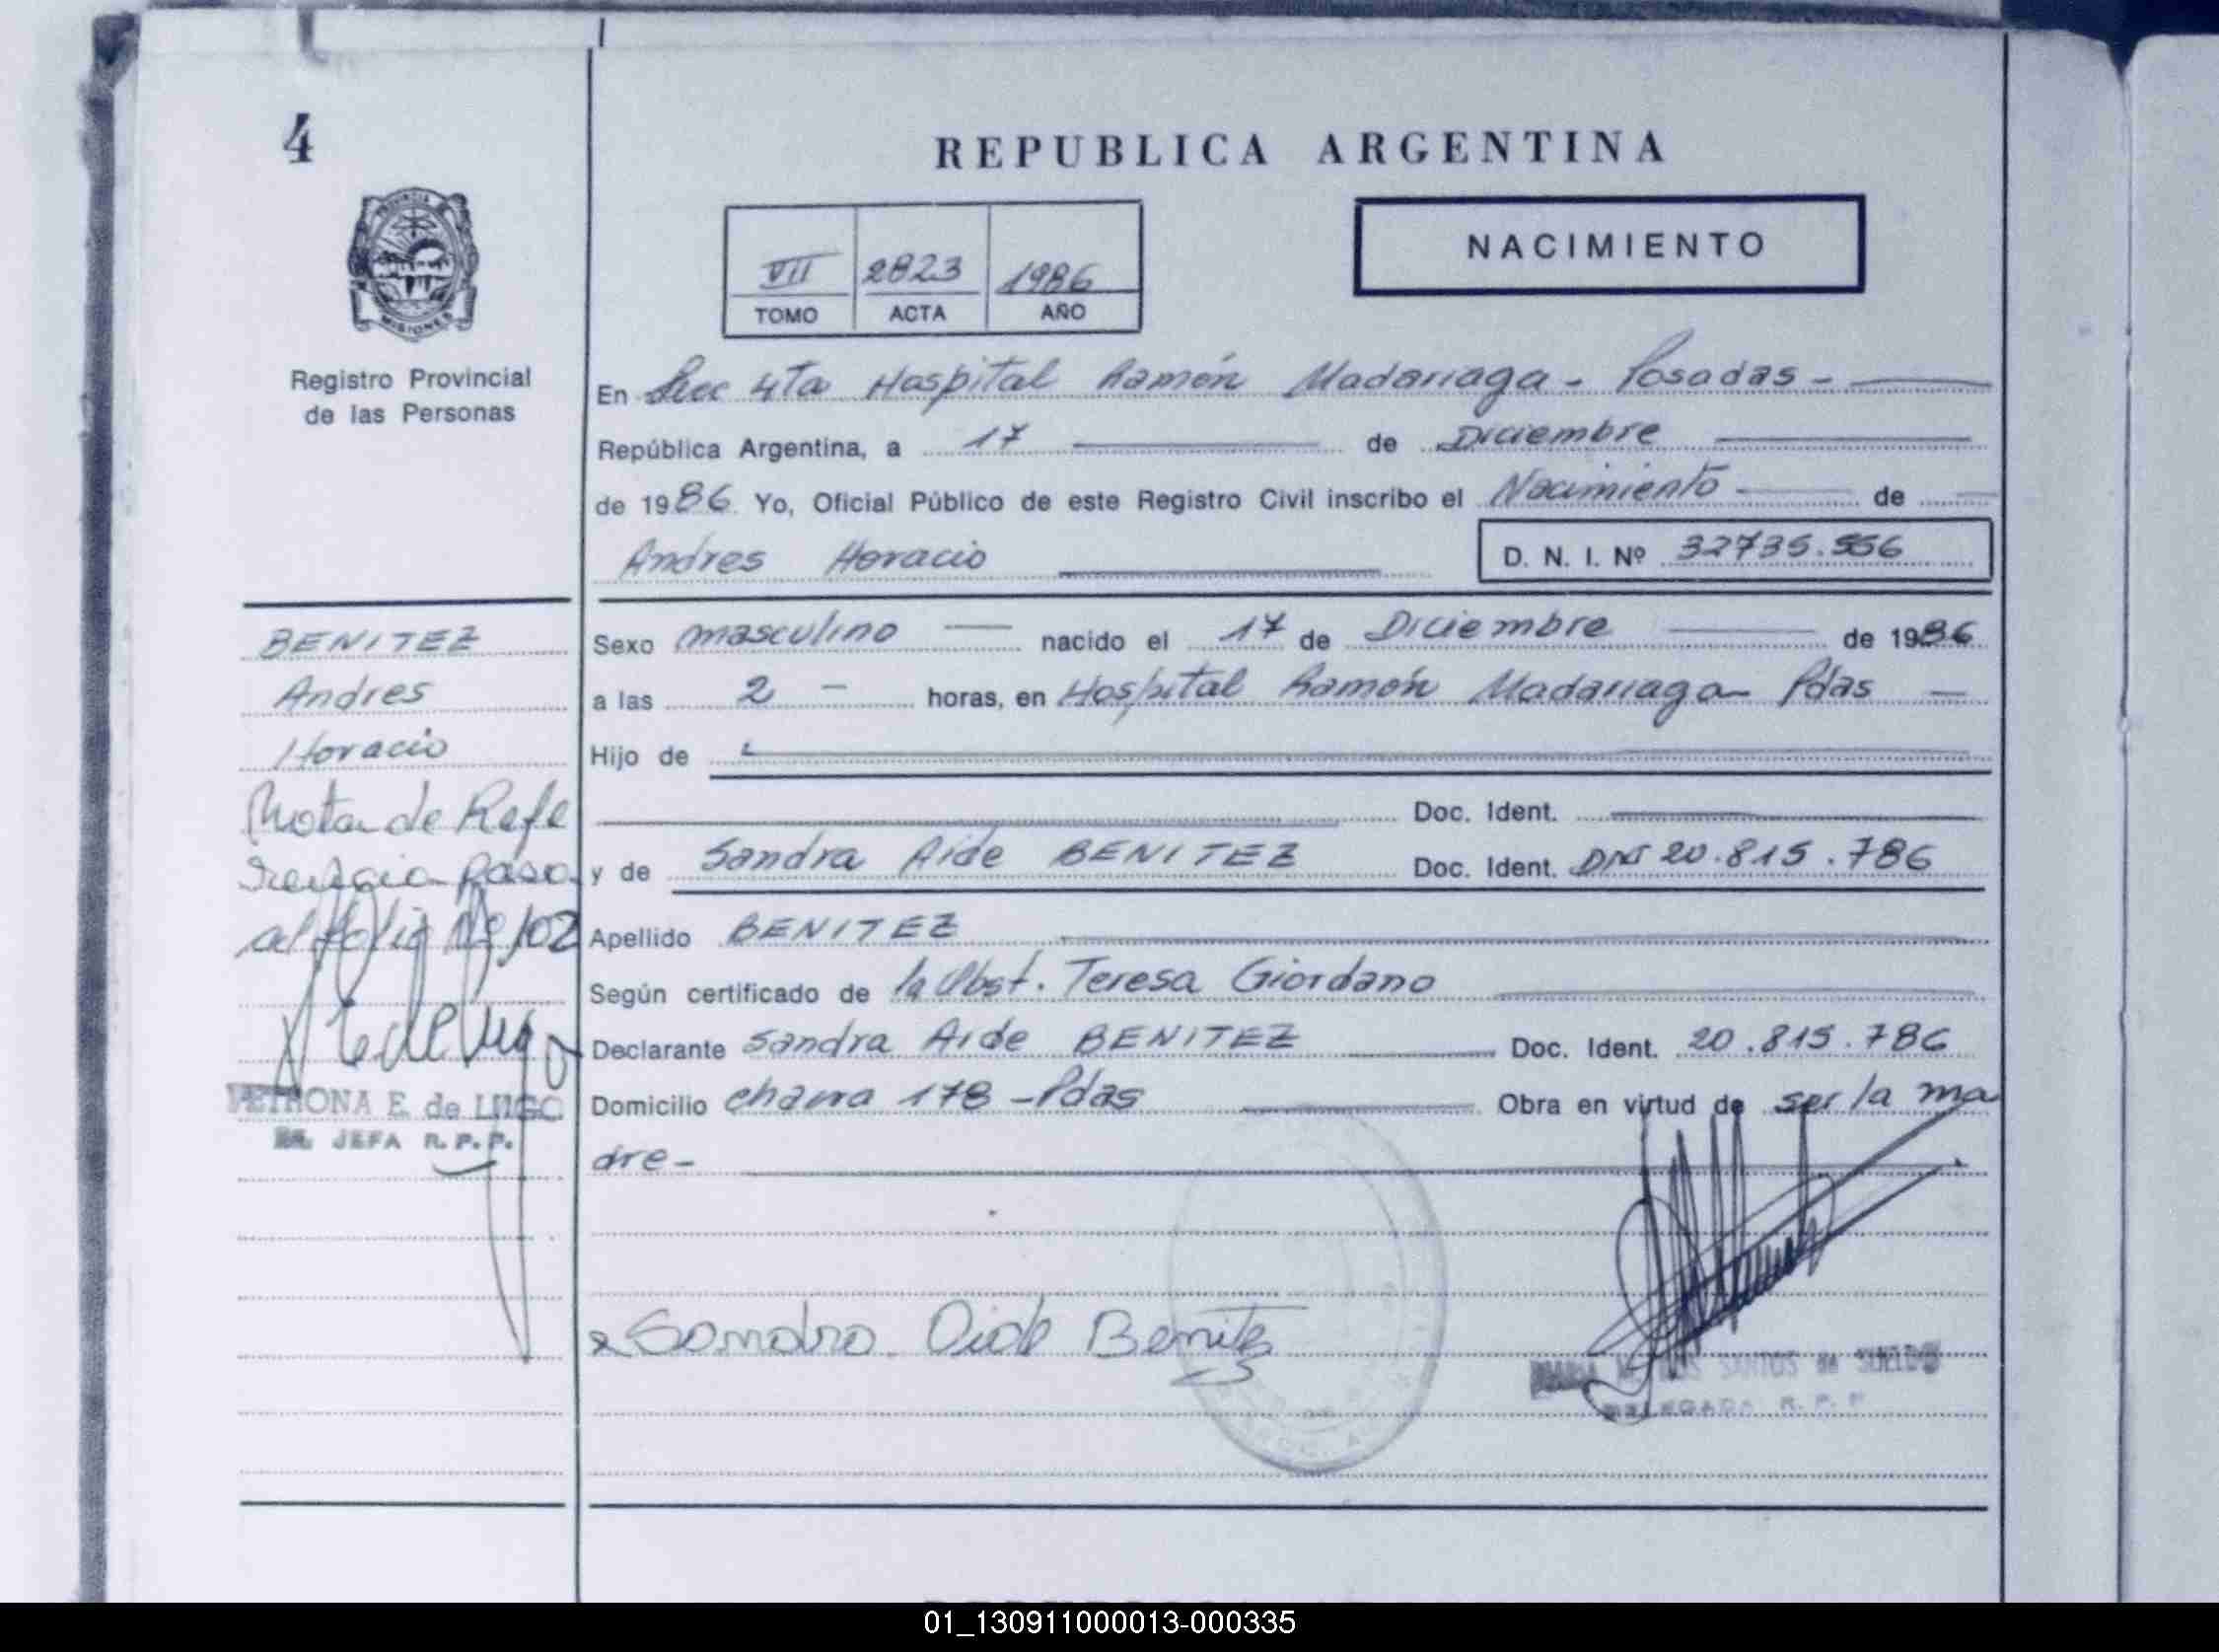 4
REPUBLICA ARGENTINA
NACIMIENTO
VII 2823 1986
TOMO ACTA AÑO
PROVINCIA
MISIONES
Registro Provincial
de las Personas
En Secc 4ta Hospital Ramón Madariaga - Posadas -
República Argentina, a 17 de Diciembre
de 1986 Yo, Oficial Público de este Registro Civil inscribo el Nacimiento de
Andres Horacio D. N. I. Nº 32735.556
BENITEZ
Andres
Horacio
Nota de Refe
rencia pasa
al folio Nº 102
PETRONA E. de LUGO
JEFA R. P. P.
Sexo masculino nacido el 17 de Diciembre de 1986
a las 2 - horas, en Hospital Ramón Madariaga Pdas
Hijo de
Doc. Ident.
y de Sandra Aide BENITEZ Doc. Ident. DNI 20.815.786
Apellido BENITEZ
Según certificado de la Obst. Teresa Giordano
Declarante Sandra Aide BENITEZ Doc. Ident. 20.815.786
Domicilio chacra 178 - Pdas Obra en virtud de ser la ma
dre -
Sandra Aide Benitez
SANTOS de SUELDO
DELEGADA R. P. P.
01_130911000013-000335